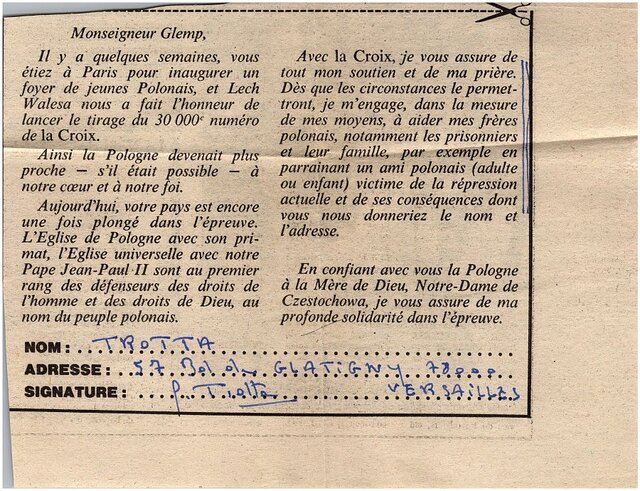 Monseigneur Glemp,
Il y a quelques semaines, vous
étiez à Paris pour inaugurer un
foyer de jeunes Polonais, et Lech
Walesa nous a fait l'honneur de
lancer le tirage du 30 000e numéro
de la Croix.
Ainsi la Pologne devenait plus
proche — s'il était possible — à
notre cœur et à notre foi.
Aujourd'hui, votre pays est encore
une fois plongé dans l'épreuve.
L'Eglise de Pologne avec son pri-
mat, l'Eglise universelle avec notre
Pape Jean-Paul II sont au premier
rang des défenseurs des droits de
l'homme et des droits de Dieu, au
nom du peuple polonais.
Avec la Croix, je vous assure de
tout mon soutien et de ma prière.
Dès que les circonstances le permet-
tront, je m'engage, dans la mesure
de mes moyens, à aider mes frères
polonais, notamment les prisonniers
et leur famille, par exemple en
parrainant un ami polonais (adulte
ou enfant) victime de la répression
actuelle et de ses conséquences dont
vous nous donneriez le nom et
l'adresse.
En confiant avec vous la Pologne
à la Mère de Dieu, Notre-Dame de
Czestochowa, je vous assure de ma
profonde solidarité dans l'épreuve.
NOM : TROTTA
ADRESSE : 57 Bd de GLATIGNY 78000
SIGNATURE : Trotta VERSAILLES